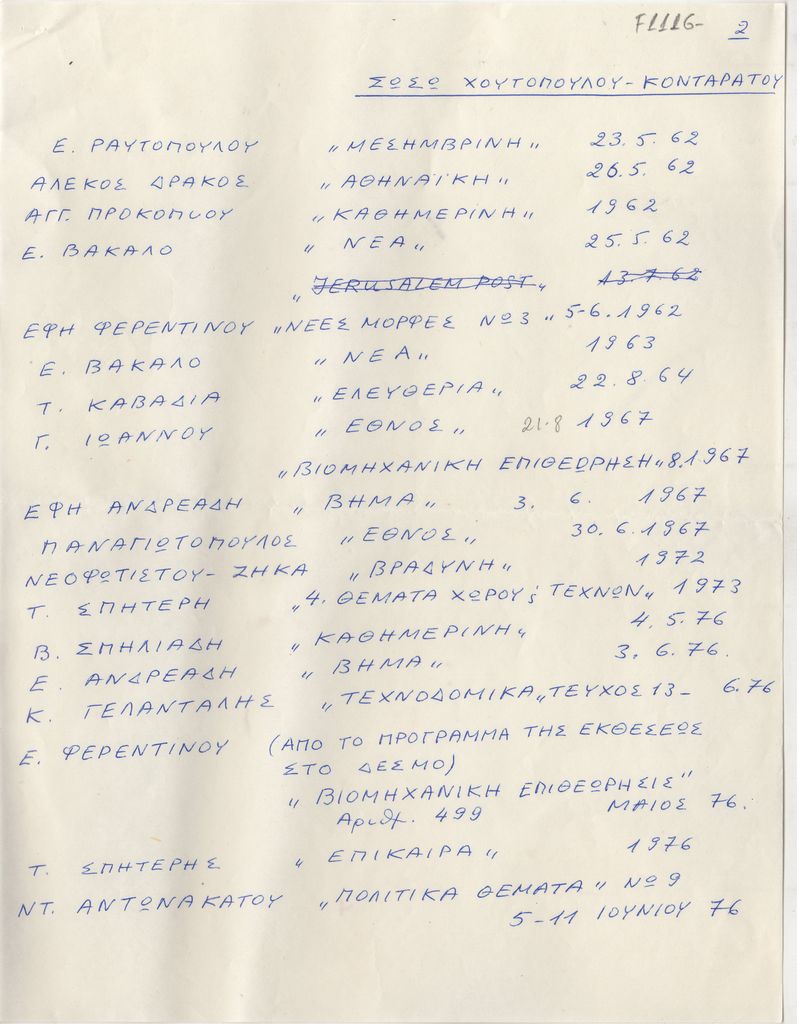 F1116- 2
ΣΩΣΩ ΧΟΥΤΟΠΟΥΛΟΥ-ΚΟΝΤΑΡΑΤΟΥ
Ε. ΡΑΥΤΟΠΟΥΛΟΥ „ΜΕΣΗΜΒΡΙΝΗ„ 23.5.62
ΑΛΕΚΟΣ ΔΡΑΚΟΣ „ΑΘΗΝΑΪΚΗ„ 26.5.62
ΑΓΓ. ΠΡΟΚΟΠΙΟΥ „ΚΑΘΗΜΕΡΙΝΗ„ 1962
Ε. ΒΑΚΑΛΟ „ΝΕΑ„ 25.5.62
„JERUSALEM POST„ 13.7.62
ΕΦΗ ΦΕΡΕΝΤΙΝΟΥ „ΝΕΕΣ ΜΟΡΦΕΣ Νο3„ 5-6.1962
Ε. ΒΑΚΑΛΟ „ΝΕΑ„ 1963
Τ. ΚΑΒΑΔΙΑ „ΕΛΕΥΘΕΡΙΑ„ 22.8.64
Γ. ΙΩΑΝΝΟΥ „ΕΘΝΟΣ„ 21.8 1967
„ΒΙΟΜΗΧΑΝΙΚΗ ΕΠΙΘΕΩΡΗΣΗ„ 8.1967
ΕΦΗ ΑΝΔΡΕΑΔΗ „ΒΗΜΑ„ 3. 6. 1967
ΠΑΝΑΓΙΩΤΟΠΟΥΛΟΣ „ΕΘΝΟΣ„ 30.6.1967
ΝΕΟΦΩΤΙΣΤΟΥ-ΖΗΚΑ „ΒΡΑΔΥΝΗ„ 1972
Τ. ΣΠΗΤΕΡΗ „4. ΘΕΜΑΤΑ ΧΩΡΟΥ ; ΤΕΧΝΩΝ„ 1973
Β. ΣΠΗΛΙΑΔΗ „ΚΑΘΗΜΕΡΙΝΗ„ 4.5.76
Ε. ΑΝΔΡΕΑΔΗ „ΒΗΜΑ„ 3.6.76.
Κ. ΓΕΛΑΝΤΑΛΗΣ „ΤΕΧΝΟΔΟΜΙΚΑ„ ΤΕΥΧΟΣ 13- 6.76
Ε. ΦΕΡΕΝΤΙΝΟΥ (ΑΠΟ ΤΟ ΠΡΟΓΡΑΜΜΑ ΤΗΣ ΕΚΘΕΣΕΩΣ
ΣΤΟ ΔΕΣΜΟ)
„ΒΙΟΜΗΧΑΝΙΚΗ ΕΠΙΘΕΩΡΗΣΙΣ"
Αριθ. 499 ΜΑΙΟΣ 76.
Τ. ΣΠΗΤΕΡΗΣ „ΕΠΙΚΑΙΡΑ„ 1976
ΝΤ. ΑΝΤΩΝΑΚΑΤΟΥ „ΠΟΛΙΤΙΚΑ ΘΕΜΑΤΑ" Νο 9
5-11 ΙΟΥΝΙΟΥ 76